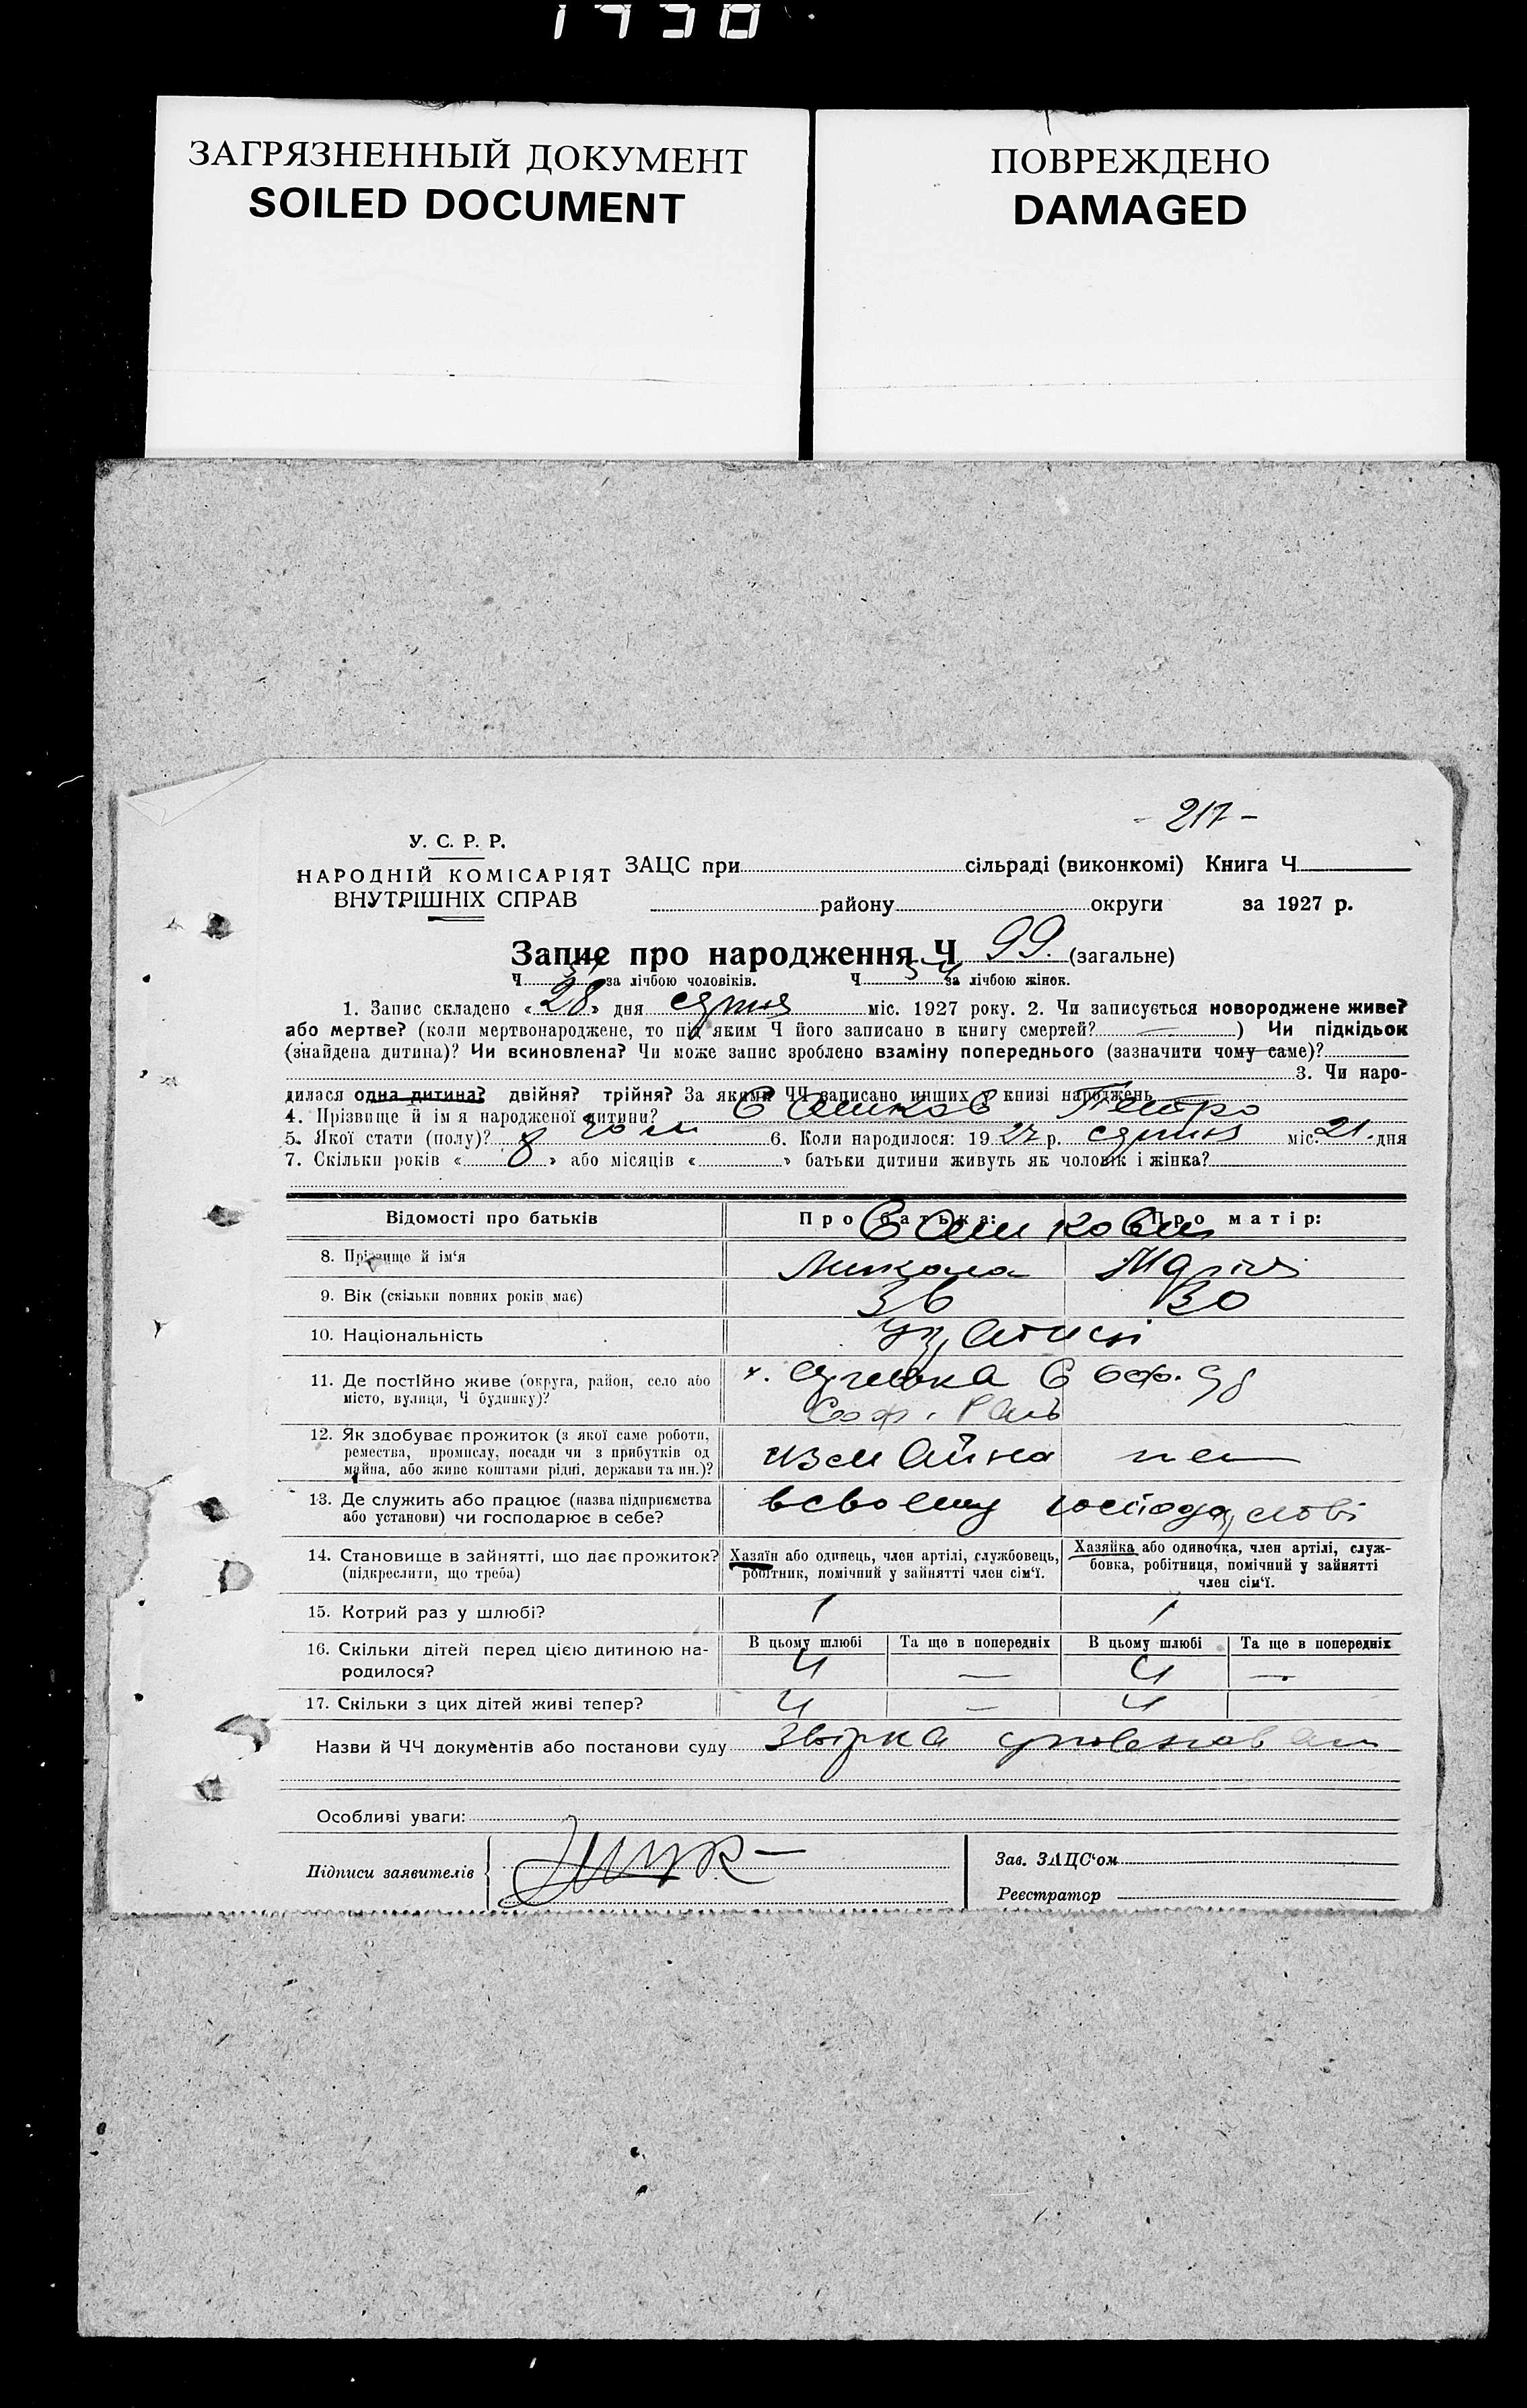 1930
ЗАГРЯЗНЕННЫЙ ДОКУМЕНТ
SOILED DOCUMENT
ПОВРЕЖДЕНО
DAMAGED
- 217 -
У. С. Р. Р.
НАРОДНІЙ КОМІСАРІЯТ
ВНУТРІШНІХ СПРАВ
ЗАЦС при сільраді (виконкомі) Книга Ч
району округи за 1927 р.
Запис про народження Ч 99. (загальне)
Ч за лічбою чоловіків. Ч за лічбою жінок.
1. Запис складено «28» дня міс. 1927 року. 2. Чи записується новороджене живе?
або мертве? (коли мертвонароджене, то під яким Ч його записано в книгу смертей? —) Чи підкідьок
(знайдена дитина)? Чи всиновлена? Чи може запис зроблено взаміну попереднього (зазначити чому саме)?
3. Чи наро-
дилася одна дитина? двійня? трійня? За якими ЧЧ записано инших у книзі народжень
4. Прізвище й імя народженої дитини? Петро
5. Якої стати (полу)? чол 6. Коли народилося: 1927 р. міс. 21. дня
7. Скільки років «8» або місяців « » батьки дитини живуть як чоловік і жінка?
Відомості про батьків Про батька: Про матір:
8. Прізвище й ім‘я Микола Марія
9. Вік (скільки повних років має) 36 30
10. Національність
11. Де постійно живе (округа, район, село або
місто, вулиця, Ч будинку)?
12. Як здобуває прожиток (з якої саме роботи,
ремества, промислу, посади чи з прибутків од
майна, або живе коштами рідні, держави та ин.)?
13. Де служить або працює (назва підприємства
або установи) чи господарює в себе?
14. Становище в зайнятті, що дає прожиток?
(підкреслити, що треба)
Хазяїн або одинець, член артілі, службовець,
робітник, помічний у зайнятті член сім‘ї.
Хазяйка або одиночка, член артілі, служ-
бовка, робітниця, помічний у зайнятті
член сім‘ї.
15. Котрий раз у шлюбі? 1 1
16. Скільки дітей перед цією дитиною на-
родилося?
В цьому шлюбі Та ще в попередніх В цьому шлюбі Та ще в попередніх
4 — 4 —
17. Скільки з цих дітей живі тепер? 4 — 4
Назви й ЧЧ документів або постанови суду
Особливі уваги:
Підписи заявителів
Зав. ЗАЦС‘ом
Реєстратор